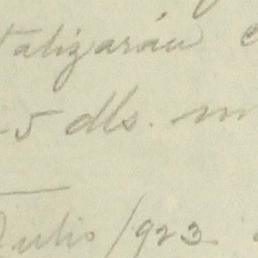 talizarán
5 dls. m
Julio /923.